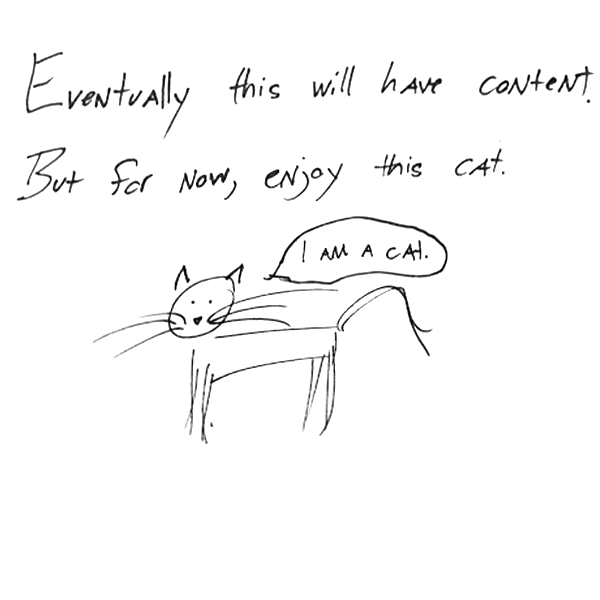 Eventually this will have content.
But for now, enjoy this cat.
I AM A CAT.